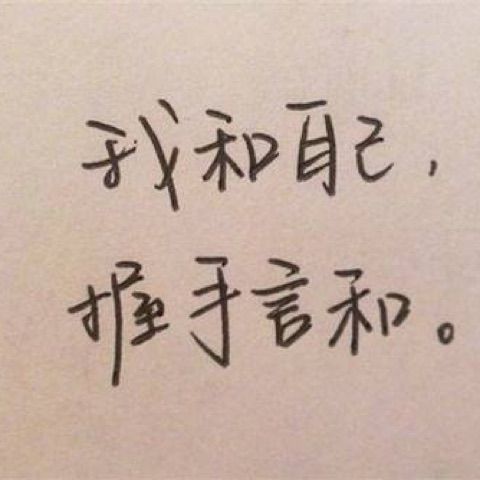 我和自己，
握手言和。